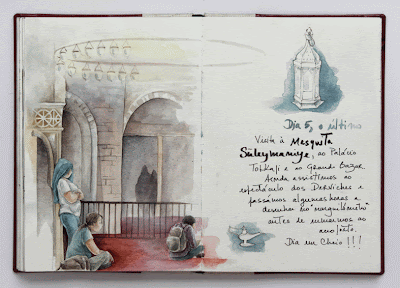 Dia 5, o último
Visita à Mesquita
Süleymaniye, ao Palácio
Topkapi e ao Grande Bazar
Ainda assistimos ao
espectáculo dos Derviches e
passámos algumas horas a
desenhar no
antes de rumarmos ao
aeroporto.
Dia em Cheio!!!